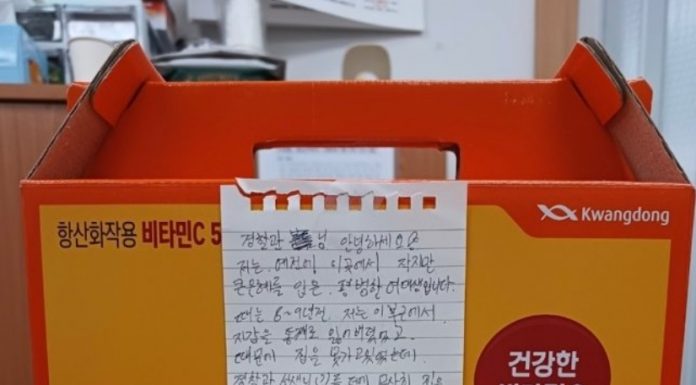 항산화작용 비타민C 5
Kwangdong
경찰관 님 안녕하세요
저는 예전에 이곳에서 작지만
큰은혜를 입은 평범한 여대생입니다.
때는 8~9년전. 저는 이 부근에서
지갑을 통째로 잃어버렸었고.
때문에 집을 못가고있었는데.
경찰관 덕에 무사히 집을
건강한